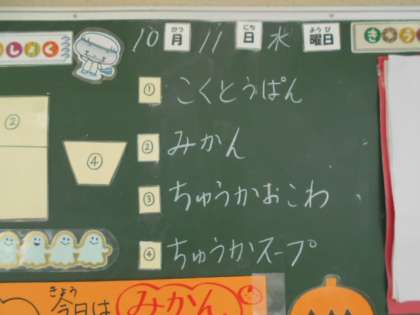 10月 11日 水曜日
がつ にち ようび
② ④
① こくとうぱん
② みかん
③ ちゅうかおこわ
④ ちゅうかスープ
きょう
今日は みかん